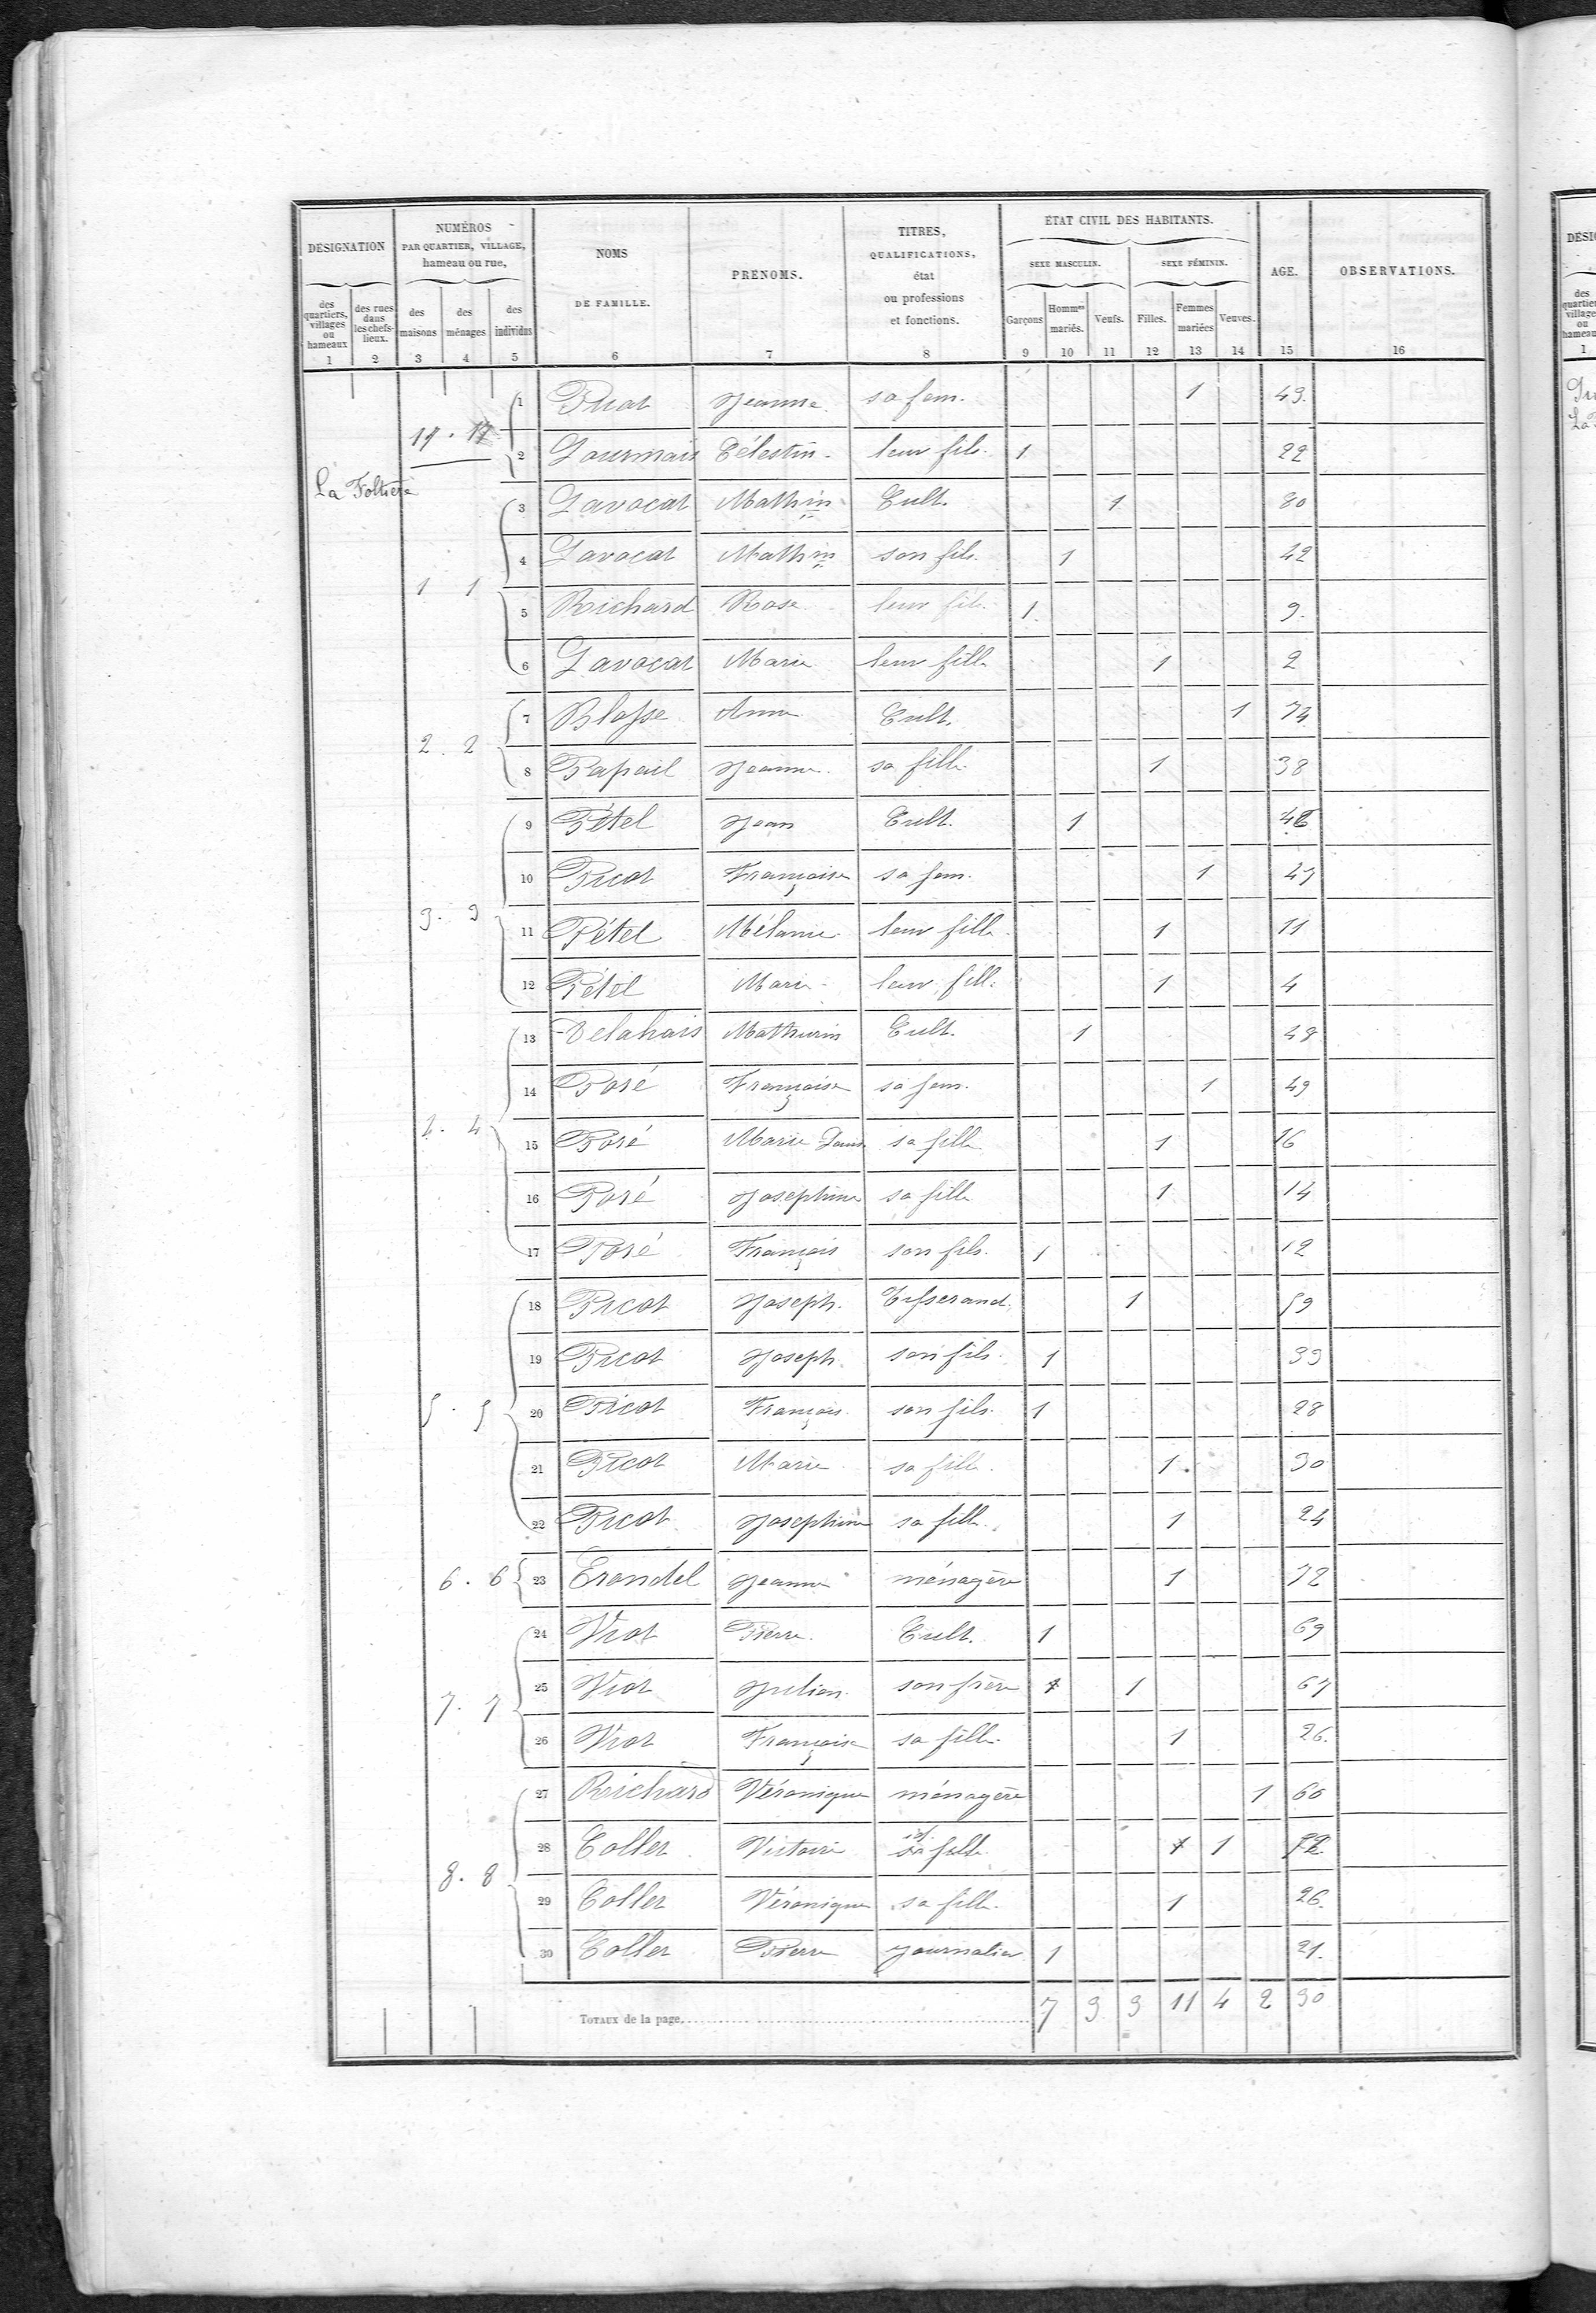 DESIGNATION
NUMÉROS
PAR QUARTIER, VILLAGE,
hameau ou rue,
NOMS
DE FAMILLE.
PRENOMS.
TITRES,
QUALIFICATIONS,
état
ou professions
et fonctions.
ÉTAT CIVIL DES HABITANTS.
SEXE MASCULIN.
SEXE FÉMININ.
AGE.
OBSERVATIONS.
des quartiers, villages ou hameaux
des rues dans les chefs-lieux.
des maisons
des ménages
des individus
Garçons
Hommes mariés.
Veufs.
Filles.
Femmes mariées
Veuves.
1 2 3 4 5 6 7 8 9 10 11 12 13 14 15 16
1 Jeanne sa fem. 1 49.
2 Gourmais Célestin leur fils. 1 22
La Foltière
3 Lavocat Mathin Cult. 1 80
4 Lavocat Mathin son fils. 1 42
1 1
5 Richard Rose leur fils. 1. 9.
6 Lavocat Marie leur fille 1 2
7 Blosse Anne Cult. 1 74
2. 2
8 Papail Jeanne sa fille 1 38
9 Pétel Jean Cult. 1
10 Picot Françoise sa fem. 1 47
3. 3
11 Pétel Mélanie leur fille 1 11
12 Pétel Marie leur fille 1 4
13 Delahais Mathurin Cult. 1 48
14 Poré Françoise sa fem. 1 49
4. 4
15 Poré Marie sa fille 1 16
16 Poré Josephine sa fille 1 14
17 Poré François son fils. 1 12
18 Picot Joseph. Tisserand. 1 59
19 Picot Joseph. son fils. 1 33
5. 5
20 Picot François son fils. 1 28
21 Picot Marie sa fille. 1. 30
22 Picot Josephine sa fille. 1 24
6. 6 23 Erondel Jeanne ménagère 1 72
24 Viot Pierre. Cult. 1 69
25 Viot Julien. son frère 1 1 67
7. 7
26 Viot Françoise sa fille. 1 26.
27 Richard Véronique ménagère 1 60
28 Collet Victoire id. sa fille 1 1
8. 8
29 Collet Véronique sa fille. 1 26.
30 Collet Pierre journalier 1 21.
TOTAUX de la page 7 3 3 11 4 2 30